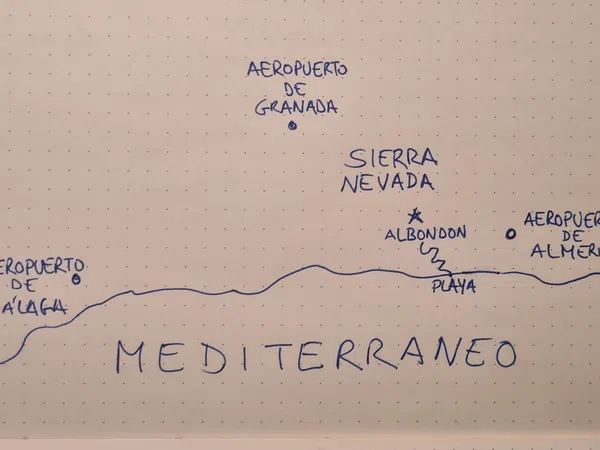 AEROPUERTO
DE
GRANADA
SIERRA
NEVADA
ALBONDON
AEROPUER
DE
ALMER
EROPUERTO
DE
ÁLAGA
PLAYA
MEDITERRANEO